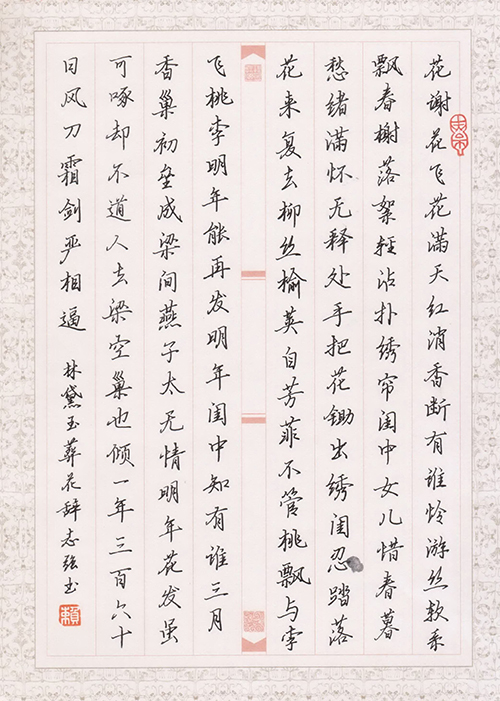 花谢花飞花满天红消香断有谁怜游丝软系
飘春榭落絮輕沾扑绣帘闺中女儿惜春暮
愁绪满怀无释处手把花锄出绣闺忍踏落
花来复去柳丝榆荚自芳菲不管桃飘与李
飞桃李明年能再发明年闺中知有谁三月
香巢初垒成梁间燕子太无情明年花发虽
可啄却不道人去梁空巢也倾一年三百六十
日风刀霜剑严相逼 林黛玉葬花辞志强书